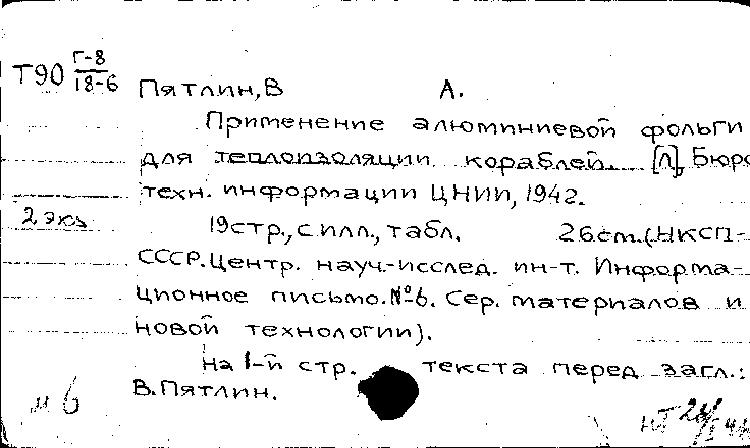 Т90 Г-8
18-6
Пятлин, В А.
Применение алюминиевой фольги
для теплоизоляции кораблей. [Л], Бюро
техн. информации ЦНИИ, 1942.
2 экз
19стр., с илл., табл. 26cm. (НКСП-
СССР. Центр. науч.-исслед. ин-т. Информа-
ционное письмо. №6. Сер. материалов и
новой технологии).
На 1-й стр. текста перед загл.:
В. Пятлин.
и 6
НТ